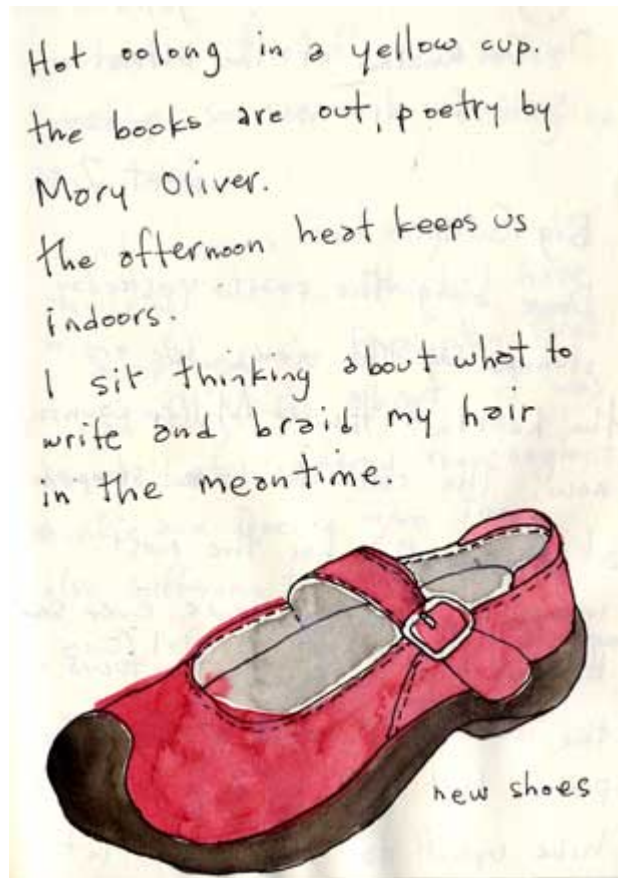 Hot oolong in a yellow cup.
the books are out, poetry by
Mary Oliver.
the afternoon heat keeps us
indoors.
I sit thinking about what to
write and braid my hair
in the meantime.
new shoes